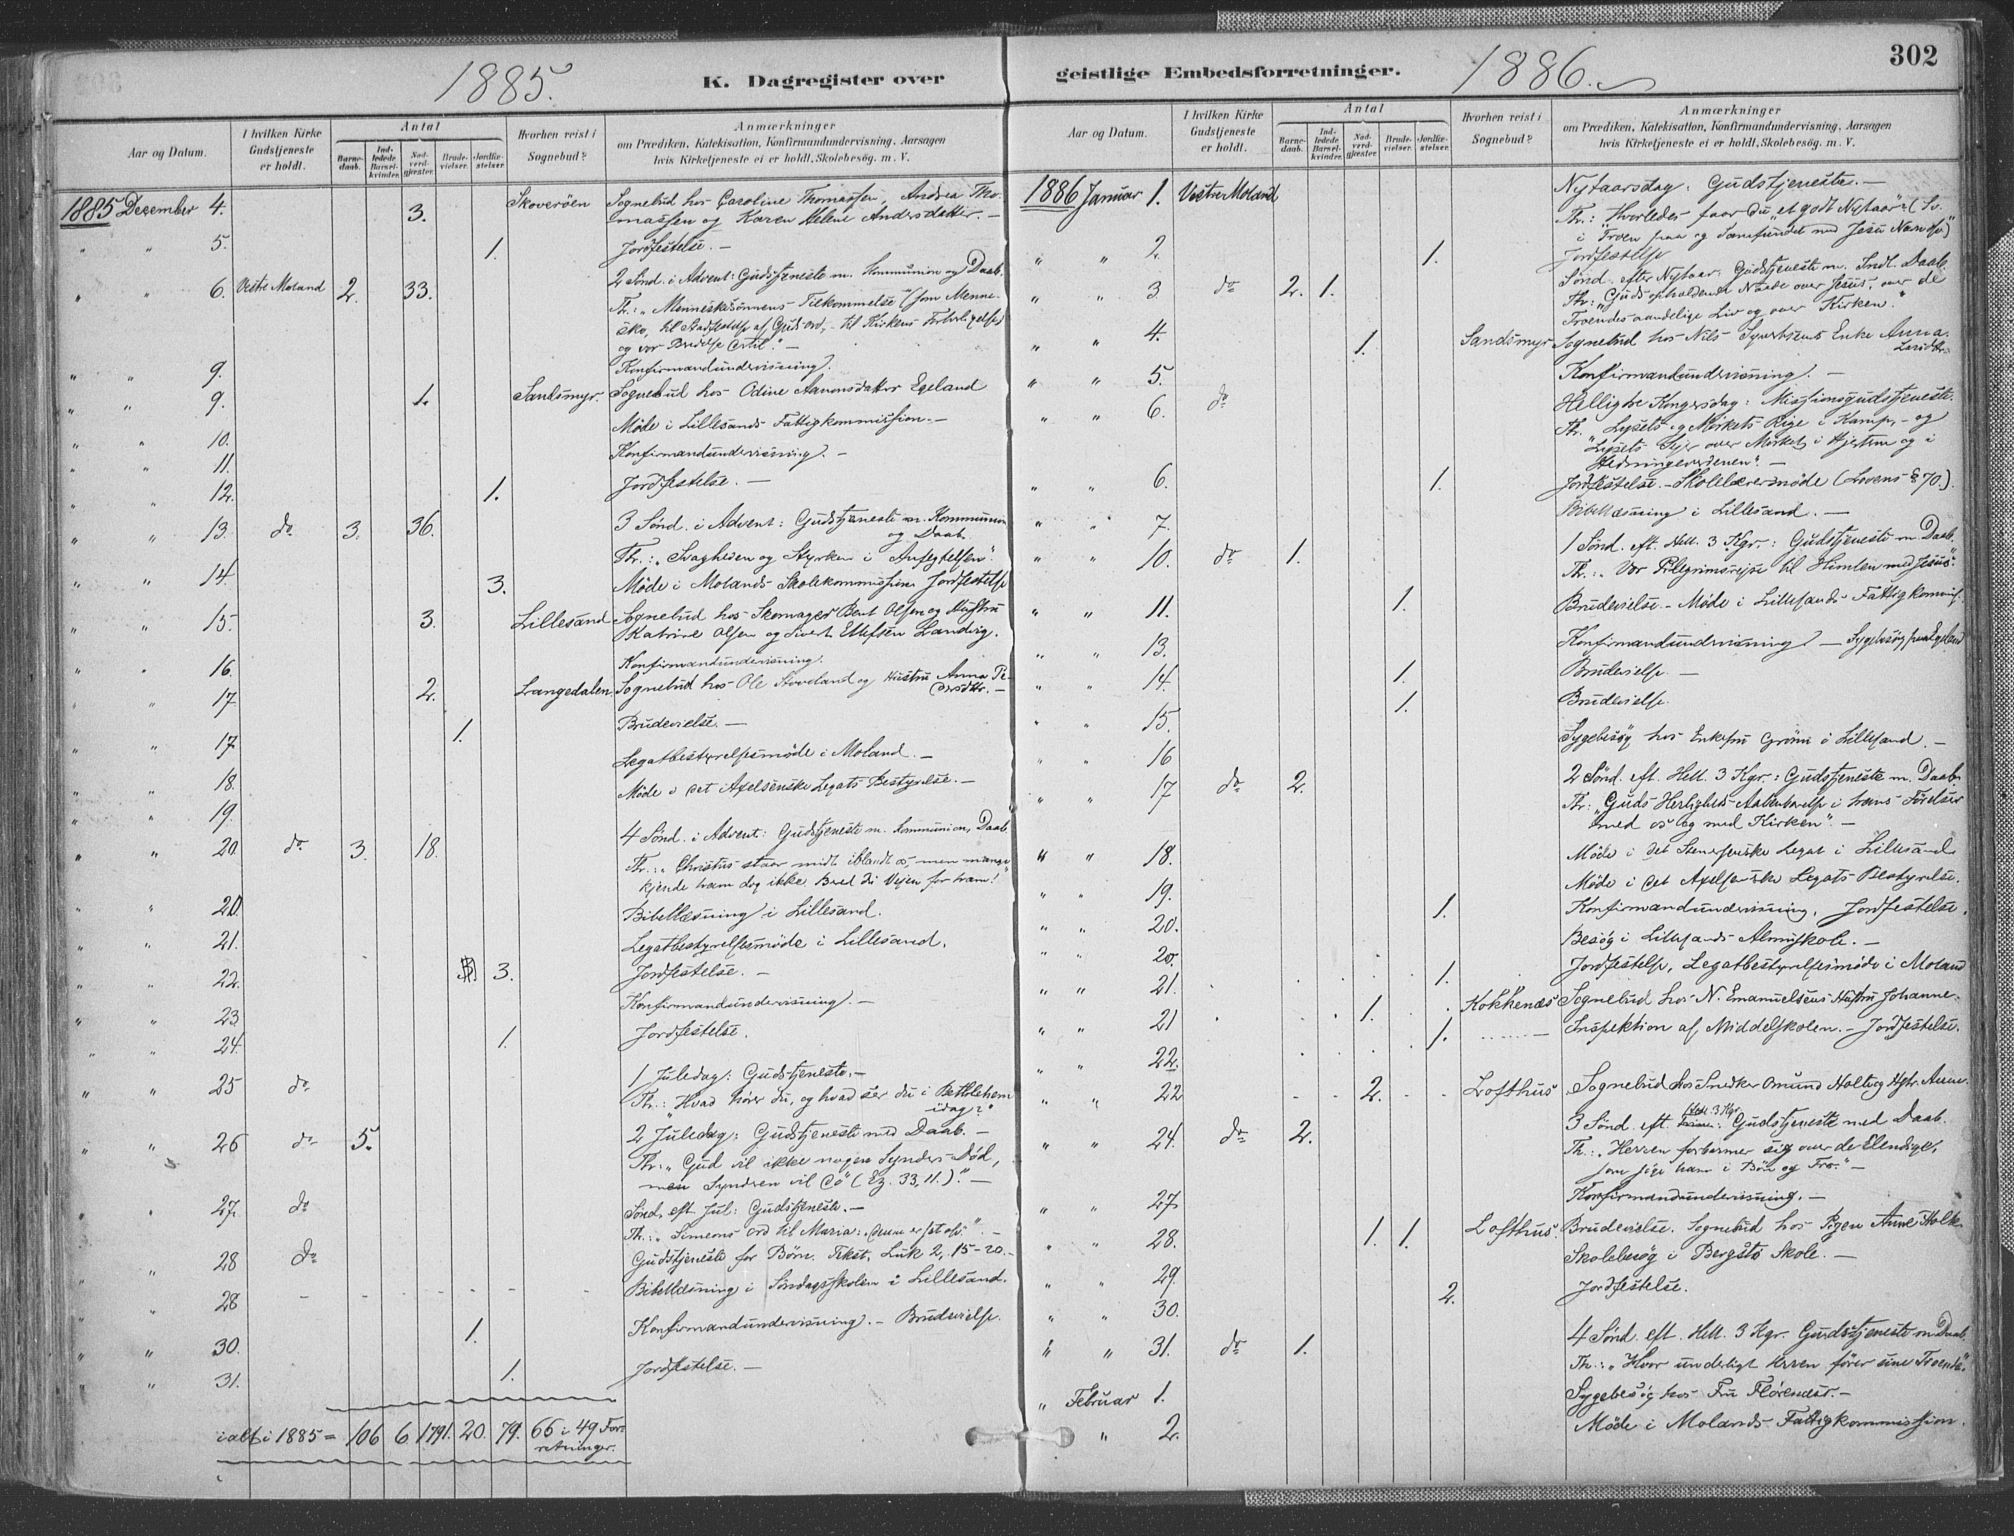 302
1885.
K. Dagregister over
geistlige Embedsforretninger.
1886.
Aar og Datum.
I hvilken Kirke Gudstjeneste er holdt.
Antal
Barnedaab.
Indledede Barselkvinder.
Nadverdgjester.
Brudevielser.
Jordfæstelser.
Hvorhen reist i Sognebud?
Anmærkninger
om Prædiken, Katekisation, Konfirmandundervisning, Aarsagen
hvis Kirketjeneste ei er holdt, Skolebesøg. m. V.
1885 Desember 4. 3. Skoverøen Sognebud hos Caroline Thomassen, Andrea Tho-
massen og Karen Helene Andrsdatter. —
" " 5. 1. Jordfestelse. —
" " 6. Vestre Moland 2. 33. 2 Sønd. i Advent: Gudstjeneste m. Kommunion og Daab.
Th.: „Menneskesønnens Tilkommelse" (som Menne-
ske, til Stadfestelse af Guds ord, — til Kirkens Forherligelse)
og vor Beredelse dertil." —
" " 9. Konfirmandundervisning.
" " 9. 1. Sandsmyr. Sognebud hos Odine Aanonsdatter Egeland
" " 10. Møde i Lillesands Fattigkommission. —
" " 11. Konfirmandundervisning. —
" " 12. 1. Jordfestelse. —
" " 13. do 3. 36. 3 Sønd. i Advent: Gudstjeneste m. Kommunion
og Daab.
Th.: „Svagheden og Styrken i Anfegtelsen"
" " 14. 3. Møde i Molands Skolekommission Jordfestelse
" " 15. 3. Lillesand Sognebud hos Skomager Bent Olsen og Hustru
Katrine Olsen og Sivert Ellefsen Landvig.
" " 16. Konfirmandundervisning.
" " 17. 2. Langedalen Sognebud hos Ole Stoveland og Hustru Anna Pe-
dersdtr. —
" " 17. 1. Brudevielse. —
" " 18. Legatbestyrelsesmøde i Moland. —
" " 19. Møde i det Axelsenske Legats Bestyrelse. —
" " 20. do 3. 18. 4 Sønd. i Advent: Gudstjeneste m. Kommunion, Daab.
Th.: „Christus staar midt iblandt os, men mange
kjende ham dog ikke. Bered du Vejen for ham!"
" " 20. Bibellæsning i Lillesand.
" " 21. Legatbestyrelsesmøde i Lillesand.
" " 22. 3. Jordfestelse. —
" " 23. Konfirmandundervisning. —
" " 24. 1. Jordfestelse.
" " 25 do 1 Juledag: Gudstjeneste. —
Th.: „Hvad hører du, og hvad ser du i Bethlehem
idag?"
" " 26 do 5. 2 Juledag: Gudstjeneste med Daab. —
Th.: „Gud vil ikke nogen Synders Død,
men Synden vil dø" (Ez. 33, 11.)." —
" " 27. do Sønd. eft. Jul: Gudstjeneste. —
Th.: „Simeons ord til Maria:
" " 28 do Gudstjeneste for Børn. Tekst. Luk 2, 15-20. —
" " 28 Bibellæsning i Søndagsskolen i Lillesand.
" " 30. 1. Konfirmandundervisning. — Brudevielse.
" " 31. 1. Jordfestelse. —
ialt i 1885 = 106 6 1791. 20. 79. 66 i 49 For-
retninger.
Aar og Datum.
I hvilken Kirke Gudstjeneste er holdt.
Antal
Barnedaab.
Indledede Barselkvinder.
Nadverdgjester.
Brudevielser.
Jordfæstelser.
Hvorhen reist i Sognebud?
Anmærkninger
om Prædiken, Katekisation, Konfirmandundervisning, Aarsagen
hvis Kirketjeneste ei er holdt, Skolebesøg. m. V.
1886 Januar 1. Vestre Moland Nytaarsdag: Gudstjeneste. —
Th.: Hvorledes faar du „et godt Nytaar"? (Sv.
i Troen paa og Samfundet med Jesu Navn
" " 2. 1. Jordfestelse
" " 3. do 2. 1. Sønd. efter Nytaar: Gudstjeneste m. Indl. Daab.
Th.: „Guds opholdende Naade over Jesus, over de
Troendes aandelige Liv og over Kirken."
" " 4. 1. Sandsmyr Sognebud hos Nils Syvertsens Enke Anna
Larsdtr.
" " 5. Konfirmandundervisning. —
" " 6. do Helligtre Kongersdag: Missionsgudstjeneste.
Th. „Lysets og Mørkets Rige i Kamp, — og
Lysets Sejer over Mørket i Hjertene og i
Hedningeverdenen". —
" " 6. 1. Jordfestelse. — Skolelærersmøde (Lovens § 70.).
" " 7. Bibellæsning i Lillesand. —
" " 10. do 1. 1 Sønd. eft. Hell. 3 Kgr.: Gudstjeneste m. Daab.
Th.: „Vor Pilegrimsrejse til Himlen med Jesus."
" " 11. 1. Brudevielse. — Møde i Lillesands Fattigkommiss.
" " 13. Konfirmandundervisning — Sygebesøg paa Egeland
" " 14. 1. Brudevielse. —
" " 15. 1. Brudevielse.
" " 16 Sygebesøg hos Enkefru Grøm i Lillesand. —
" " 17 do 2. 2 Sønd. eft. Hell. 3 Kgr.: Gudstjeneste m. Daab.
Th.: „Guds Herligheds Aabenbarelse i hans Førelser
med os og med Kirken". —
" " 18. Møde i det Stenersenske Legat i Lillesand.
" " 19. Møde i det Axelsenske Legats Bestyrelse.
" " 20. 1. Konfirmandundervisning. Jordfestelse.
" " 20. Besøg i Lillesands Almuskole. —
" " 21. 1. Jordfestelse, Legatbestyrelsesmøde i Moland
" " 21 1. Kokkenæs Sognebud hos N. Emanuelsens Hustru Johanne.
" " 22. 1. Inspektion af Middelskolen. — Jordfestelse.
" " 22 2. Lofthus Sognebud hos Snedker Omund Holte og Hstr. Anne.
" " 24. do 2. 3 Sønd. eft. Hell. 3 Kgr.: Gudstjeneste med Daab.
Th.: „Herren forbarmer sig over de Elendige,
som søge ham i Bøn og Tro." —
" " 27. Konfirmandundervisning. —
" " 28. 1. 1. Lofthus. Brudevielse. Sognebud hos Pigen Anne Holte.
" " 29. Skolebesøg i Bergstø Skole. —
" " 30. 2. Jordfestelse.
" " 31. do 1. 4 Sønd. eft. Hell. 3 Kgr. Gudstjeneste m Daab.
Th.: „Hvor underligt Herren fører sine Troende."
" Februar 1. Sygebesøg hos Fru Flørendsr. —
" " 2. Møde i Molands Fattigkommission.